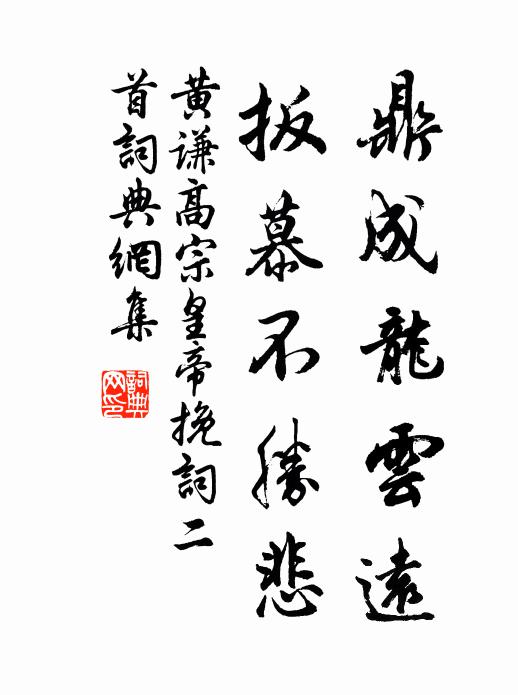 鼎成龍雲遠
扳慕不勝悲
黄谦高宗皇帝挽詞二
首詞典網集
詞典
网印